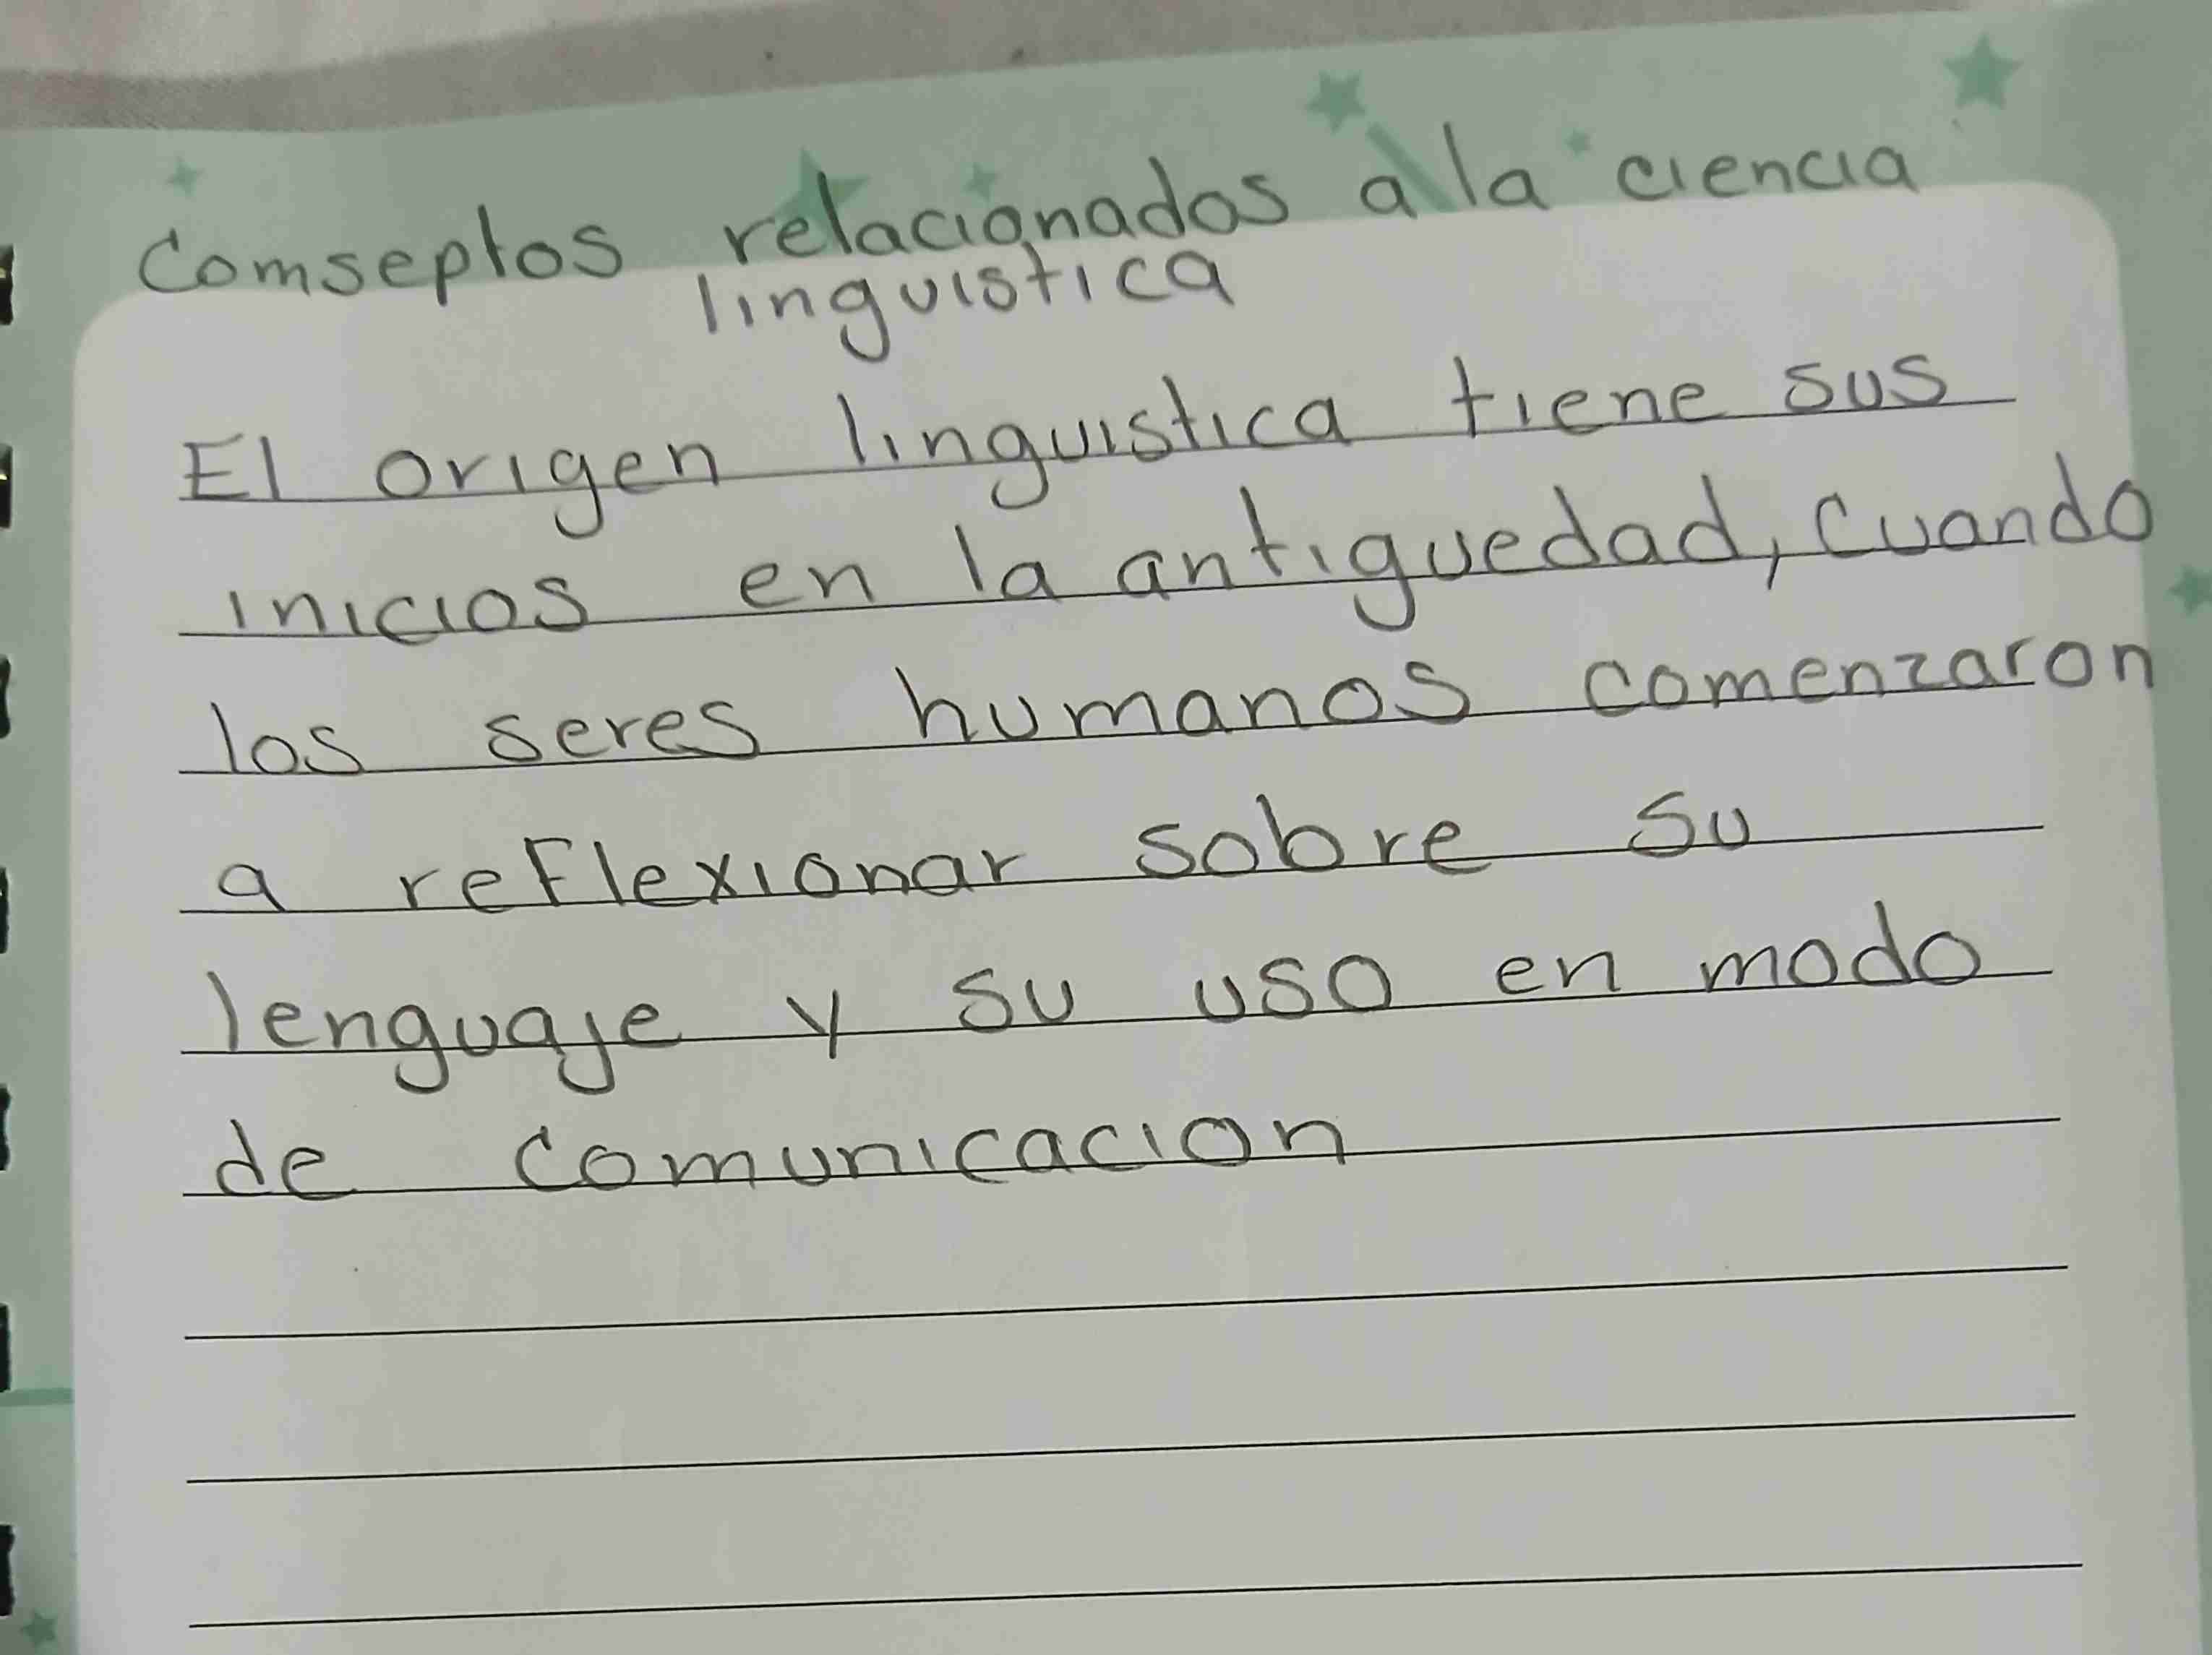 Comseptos relacionados a la ciencia
linguistica
El origen linguistica tiene sus
inicios en la antiguedad, cuando
los seres humanos comenzaron
a reflexionar sobre su
lenguaje y su uso en modo
de comunicacion